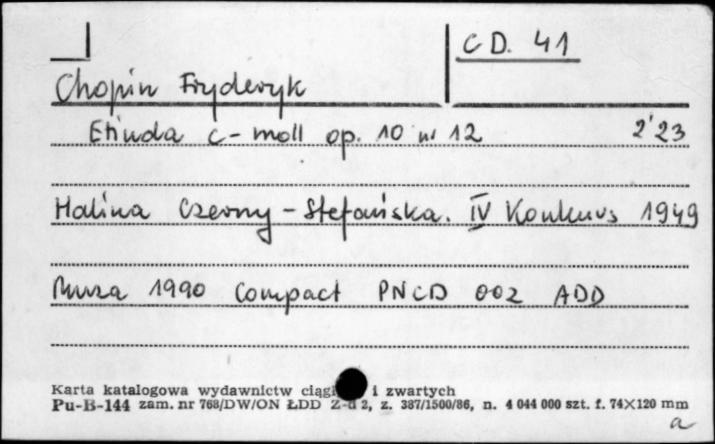 CD. 41
Chopin Fryderyk
Etiuda c-moll op. 10 nr 12 2'23
Halina Czerny-Stefańska. IV Konkurs 1949
Muza 1990 Compact PNCD 002 ADD
Karta katalogowa wydawnictw ciągł i zwartych
Pu-B-144 zam. nr 768/DW/ON ŁDD Z-d 2, z. 387/1500/86, n. 4 044 000 szt. f. 74×120 mm
a